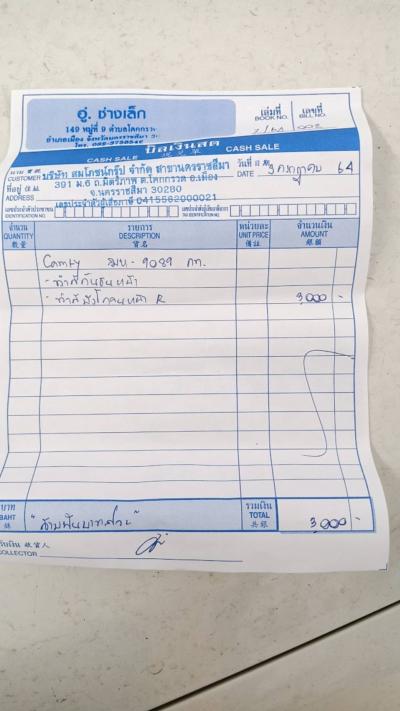 อู่ ช่างเล็ก
149 หมู่ที่ 9 ตำบลโคกกรวด
อำเภอเมือง จังหวัดนครราชสีมา
โทร.
เล่มที่ เลขที่
BOOK NO. BILL NO.
2/64 002
บิลเงินสด
CASH SALE CASH SALE
นาม
CUSTOMER บริษัท สมโภชน์กรุ๊ป จำกัด สาขานครราชสีมา วันที่
DATE 3 กรกฎาคม 64
ที่อยู่ 391 ม.6 ถ.มิตรภาพ ต.โคกกรวด อ.เมือง
ADDRESS จ.นครราชสีมา 30280
เลขประจำตัวผู้เสียภาษี 0415562000021
IDENTIFICATION NO.
จำนวน รายการ หน่วยละ จำนวนเงิน
QUANTITY DESCRIPTION UNIT PRICE AMOUNT
數量 貨名 價註 銀額
Camry 9089 กท.
- ทำสีกันชนหน้า
- ทำสีบังโคลนหน้า R 3,000 -
บาท รวมเงิน
BAHT "สามพันบาทถ้วน" TOTAL 3,000 -
銖 共銀
รับเงิน 收貨人
COLLECTOR